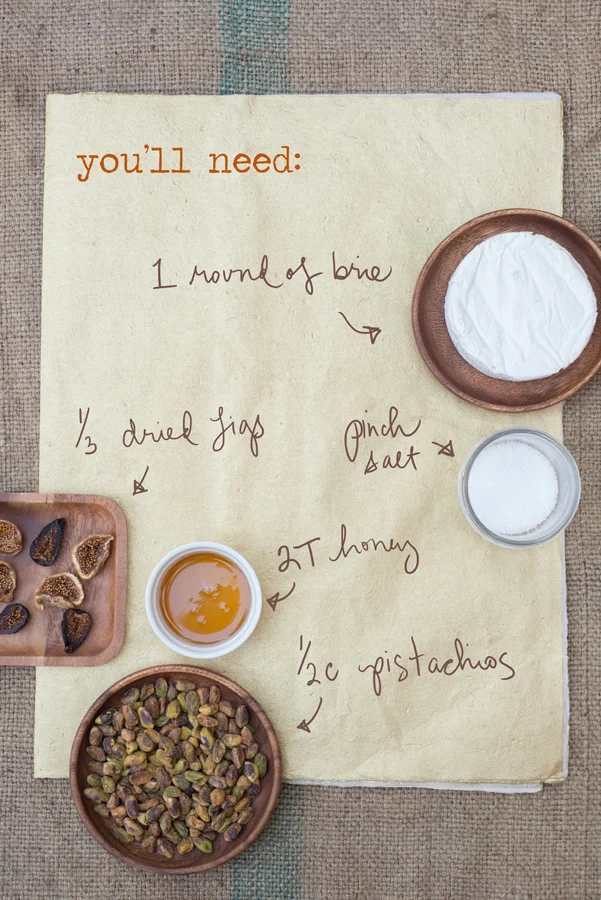 you'll need:
1 round of brie
1/3 dried figs
pinch
salt
2T honey
1/2c pistachios